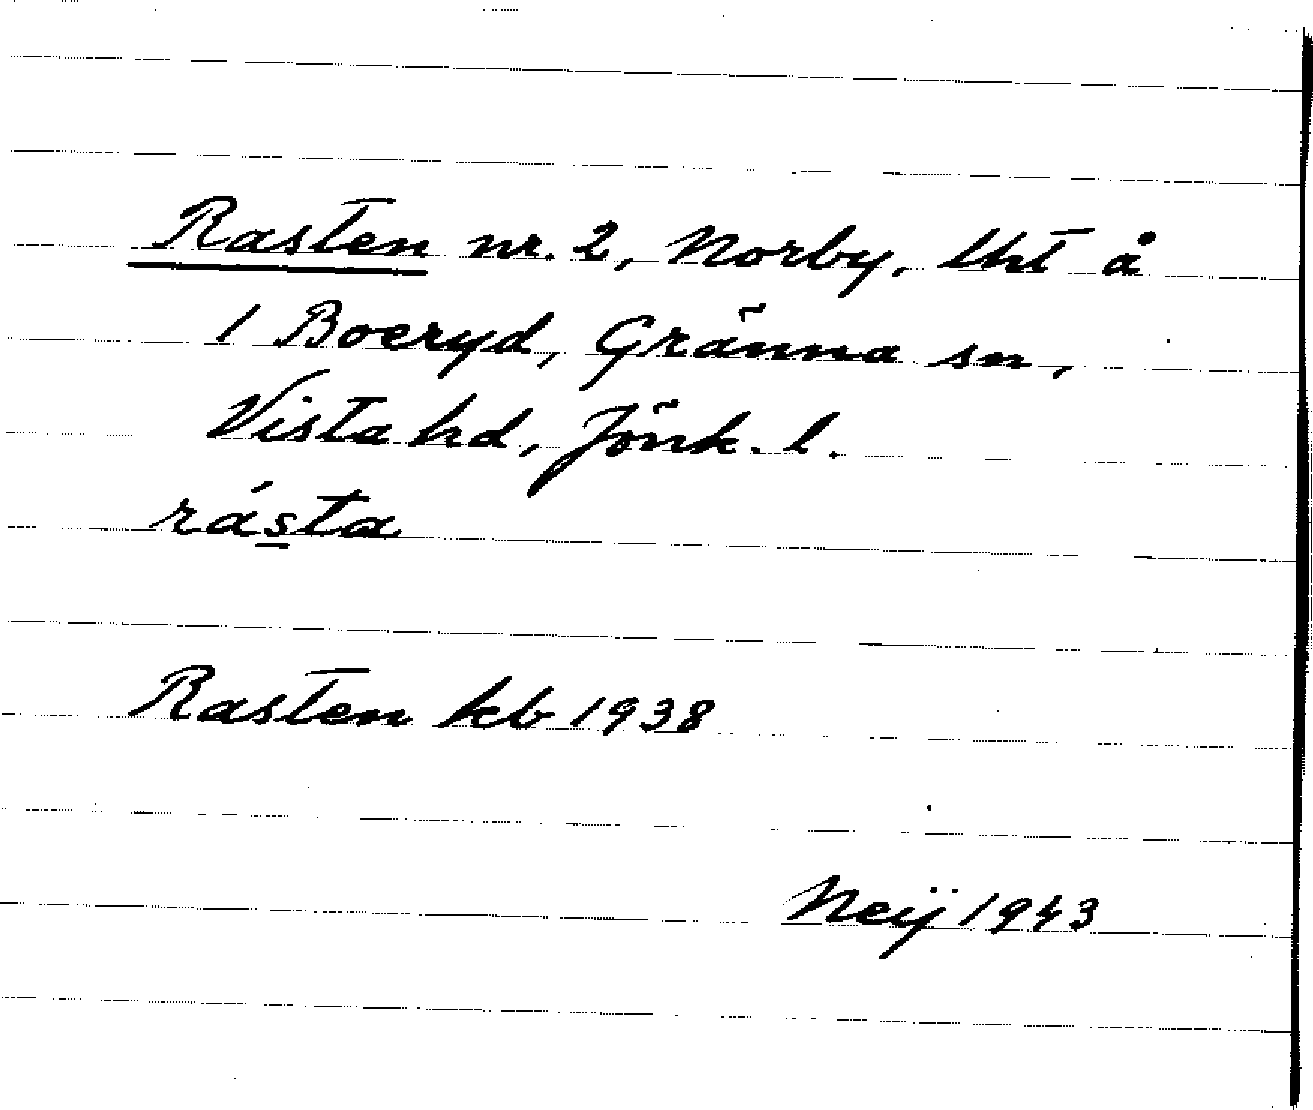 Rasten nr. 2, Norby, lht å
1 Boeryd, Gränna sn,
Vista hd, Jönk. l.
rásta
Rasten kb 1938
Neij 1943